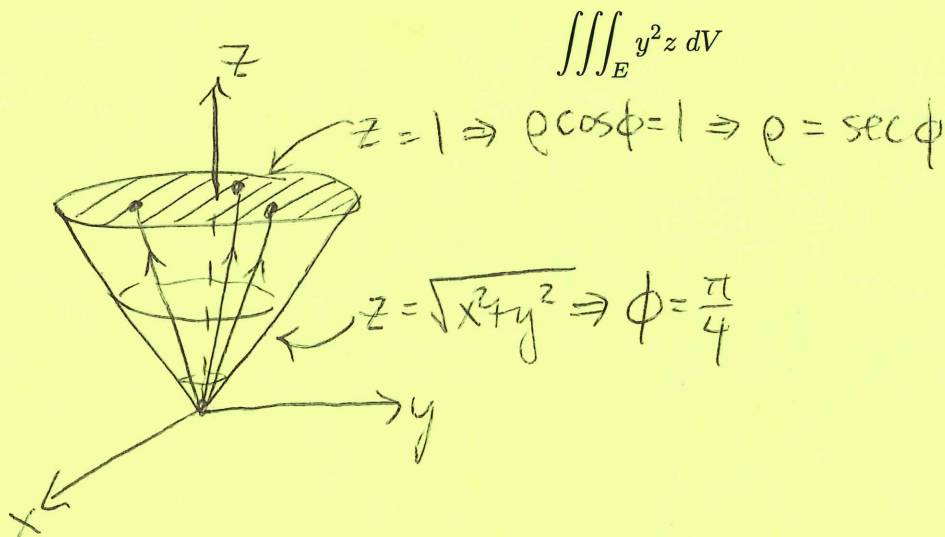 ∭_E y²z dV
z
z = 1 ⇒ ρcosϕ = 1 ⇒ ρ = secϕ
z = √(x²+y²) ⇒ ϕ = π/4
y
x